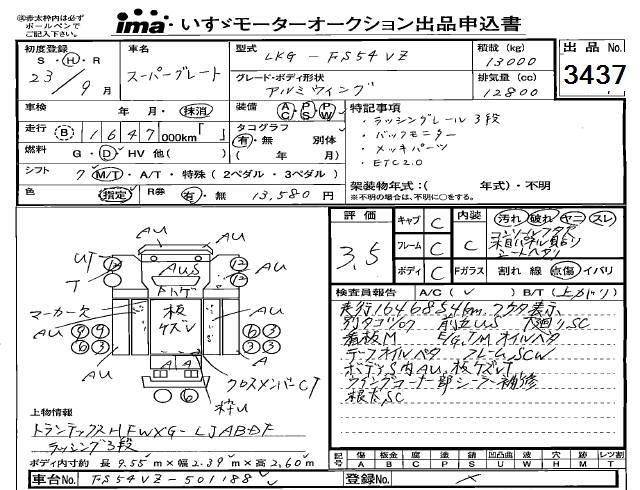 ㊟赤太枠内は必ず
ボールペンで
ご記入下さい。
ima・いすゞモーターオークション出品申込書
初度登録 車名 型式 LKG-FS54VZ 積載 (kg) 13000 出品No.
S・H・R 23/9月 スーパーグレート グレード・ボディ形状 アルミウイング 排気量 (cc) 12800 3437
車検 年・月・抹消 装備 AC・PS・PW 特記事項
走行 B 1647 000km「 」 タコグラフ 有・無 別体 ・ラッシングレール3段
( 年 月) ・バックモニター
燃料 G・D・HV 他( ) ・メッキパーツ
シフト 7 M/T・A/T・特殊(2ペダル・3ペダル) ・ETC2.0
色 指定 R券 有・無 13,580円 架装物年式:( 年式)・不明
※不明の場合は、不明に○をする。
評価 キャブ C 内装 汚れ 破れ ヤニ スレ
3.5 フレーム C C
ボディ C Fガラス 割れ 線 点傷 イバリ
検査員報告 A/C(✓) B/T(上がり)
走行164685km
看板M E/G,T/M オイルベタ
デーフオイルベタ フレームSCW
ウイングコーナー部シーラー補修
根太SC
AU AU
UT 12 12
T AUS
トハゲ
マーカー欠 板ケズレ AU
AU
クロスメンバーCT
枠U
上物情報
トランテックスHFWXG-LJABDF
ラッシング3段
ボディ内寸約 長 9.55m×幅 2.39m×高 2.60m
記号 傷 板金 腐 塗 錆 凹凸曲 波 穴 跡 レツ割
A B C P S U W H M T
車台No. FS54VZ-501188 登録No.